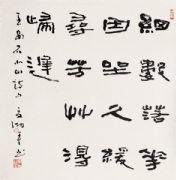 細數落華
因坐久緩
尋芳艸得
歸遲
王安石北山詩句